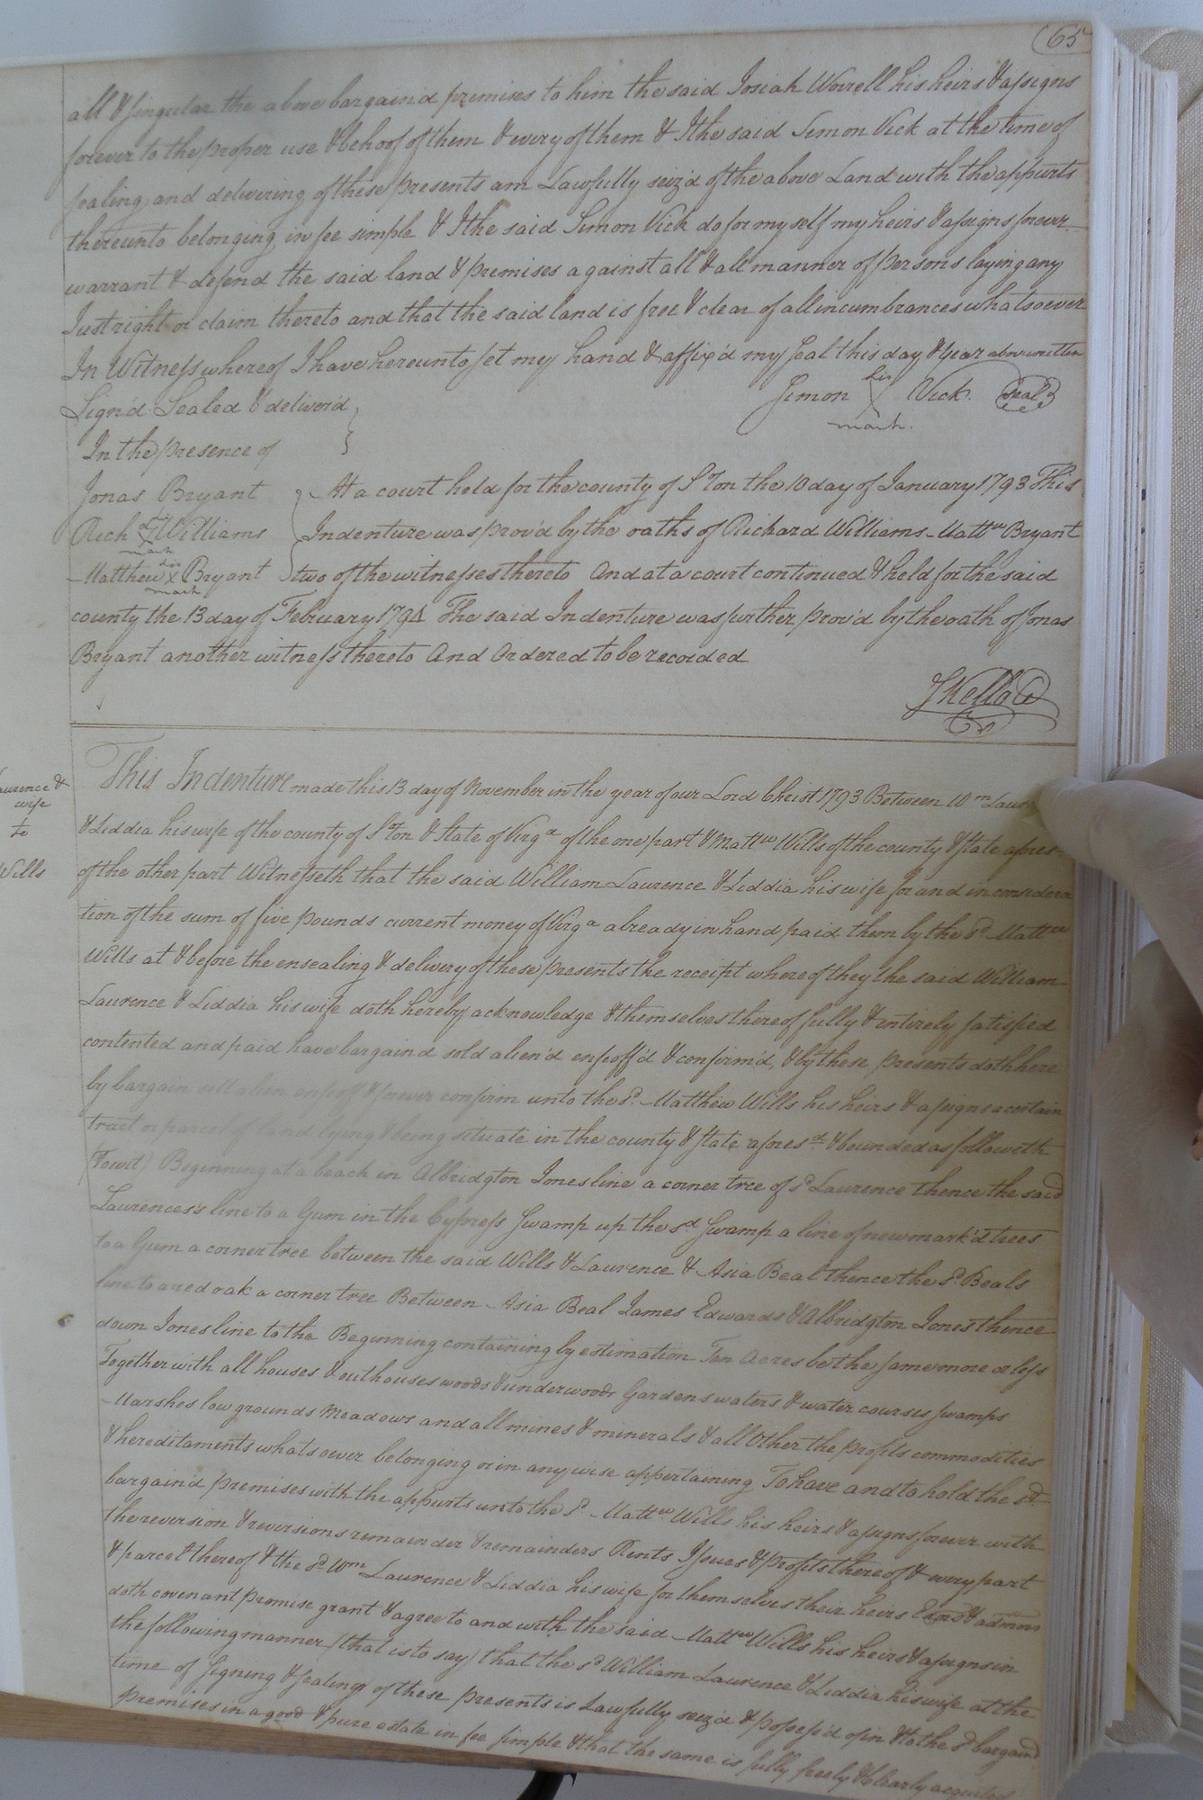 65
all & singular the above bargain'd premises to him the said Josiah Worrell his heirs & assigns
forever to the proper use & behoof of them & every of them & I the said Simon Vick at the time of
sealing and delivering of these presents am Lawfully seiz'd of the above Land with the appurts
thereunto belonging in fee simple & I the said Simon Vick do for my self my heirs & assigns forever
warrant & defend the said land & premises against all & all manner of persons laying any
Just right or claim thereto and that the said land is free & clear of all incumbrances whatsoever
In Witness whereof I have hereunto set my hand & affix'd my seal this day & year above written
Sign'd Sealed & deliver'd
Simon his X mark Vick Seal
In the presence of
Jonas Bryant
Rich'd Williams
mark
Matthew his X mark Bryant
At a court held for the county of S'ton the 10 day of January 1793 This
Indenture was prov'd by the oaths of Richard Williams Matt'w Bryant
two of the witnesses thereto And at a court continued & held for the said
county the 13 day of February 1794 The said Indenture was further prov'd by the oath of Jonas
Bryant another witness thereto And Ordered to be recorded
Laurence &
wife
to
Wills
This Indenture made this 13 day of November in the year of our Lord Christ 1793 Between Wm Laur
& Liddia his wife of the county of S'ton & State of Virga of the one part & Mattw Wills of the county & state afores
of the other part Witnesseth that the said William Laurence & Liddia his wife for and in considera
tion of the sum of five pounds current money of Virga already in hand paid them by the sd Mattw
Wills at & before the ensealing & delivery of these presents the receipt whereof they the said William
Laurence & Liddia his wife doth hereby acknowledge & themselves thereof fully & entirely satisfied
contented and paid have bargain'd sold alien'd enfeoff'd & confirm'd, & by these presents doth here
by bargain sell alien enfeoff & forever confirm unto the sd Matthew Wills his heirs & assigns a certain
tract or parcel of land lying & being situate in the county & state aforesd & bounded as followeth
(Towit) Beginning at a beach in Albridgton Jones line a corner tree of sd Laurence thence the said
Laurences's line to a Gum in the Cypress Swamp up the sd Swamp a line of new mark'd trees
to a Gum a corner tree between the said Wills & Laurence & Asia Beal thence the sd Beals
line to a red oak a corner tree Between Asia Beal James Edwards & Albridgton Jones thence
down Jones line to the Beginning containing by estimation Ten Acres be the same more or less
Together with all houses & outhouses woods & underwoods Gardens waters & water courses swamps
Marshes low grounds Meadows and all mines & minerals & all Other the profits commodities
& hereditaments whatsoever belonging or in any wise appertaining To have and to hold the sd
bargain'd premises with the appurts unto the sd Mattw Wills his heirs & assigns forever with
the reversion & reversions remainder & remainders Rents Issues & profits thereof & every part
& parcel thereof & the sd Wm Laurence & Liddia his wife for themselves their heirs Exors & admors
doth covenant promise grant & agree to and with the said Mattw Wills his heirs & assigns in
the following manner (that is to say) that the sd William Laurence & Liddia his wife at the
time of signing & sealing of these presents is Lawfully seiz'd & possess'd of in & to the sd bargain'd
premises in a good & pure estate in fee simple & that the same is fully freely & clearly acquitted